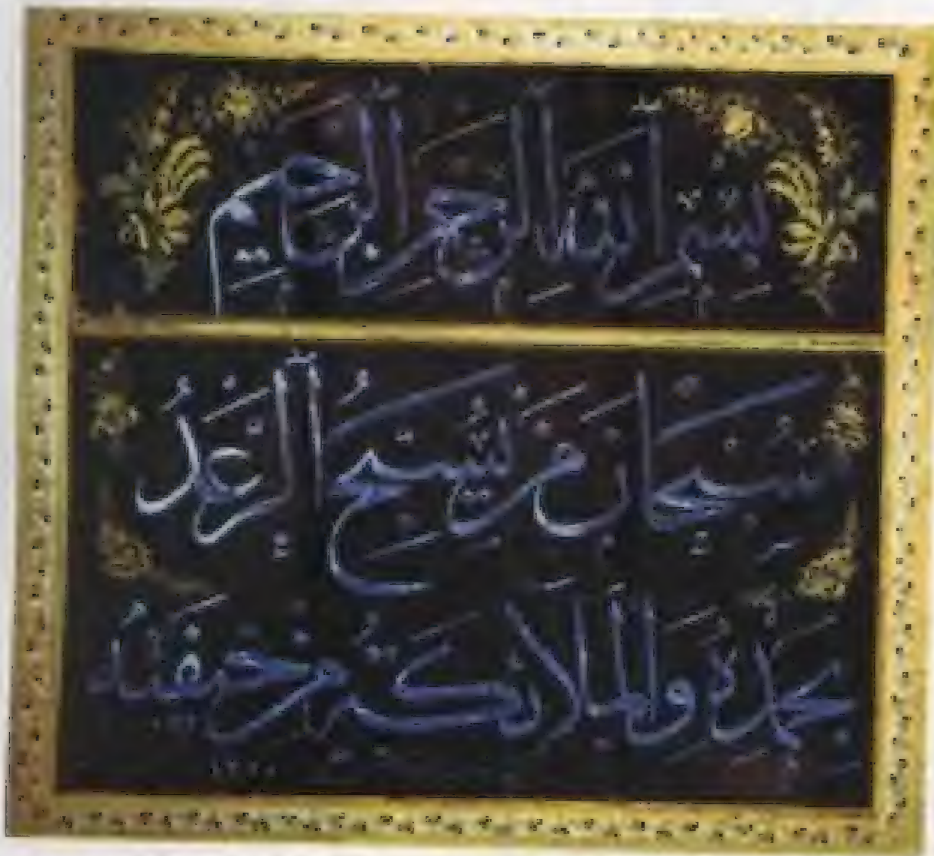 بِسْمِ اللهِ الرَّحْمٰنِ الرَّحِيمِ
سُبْحَانَ مَنْ يُسَبِّحُ الرَّعْدُ
بِحَمْدِهِ وَالْمَلَائِكَةُ مِنْ خِيفَتِهِ